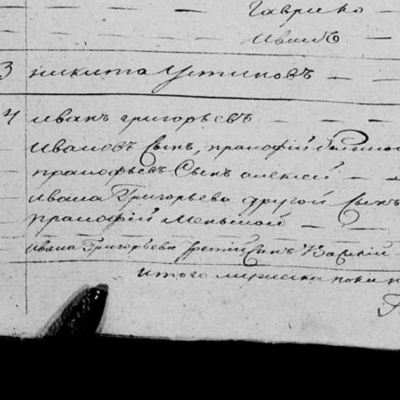 Гаврило
Иванъ
3 Никита Устиновъ
4 Иванъ Григорьевъ
Ивановъ сынъ, Прокофій большой
Прокофьевъ Сынъ Алексей
Ивана Григорьева другой Сынъ
Прокофий Меньшой
Ивана Григорьева третий Сынъ
итого мужеска пола